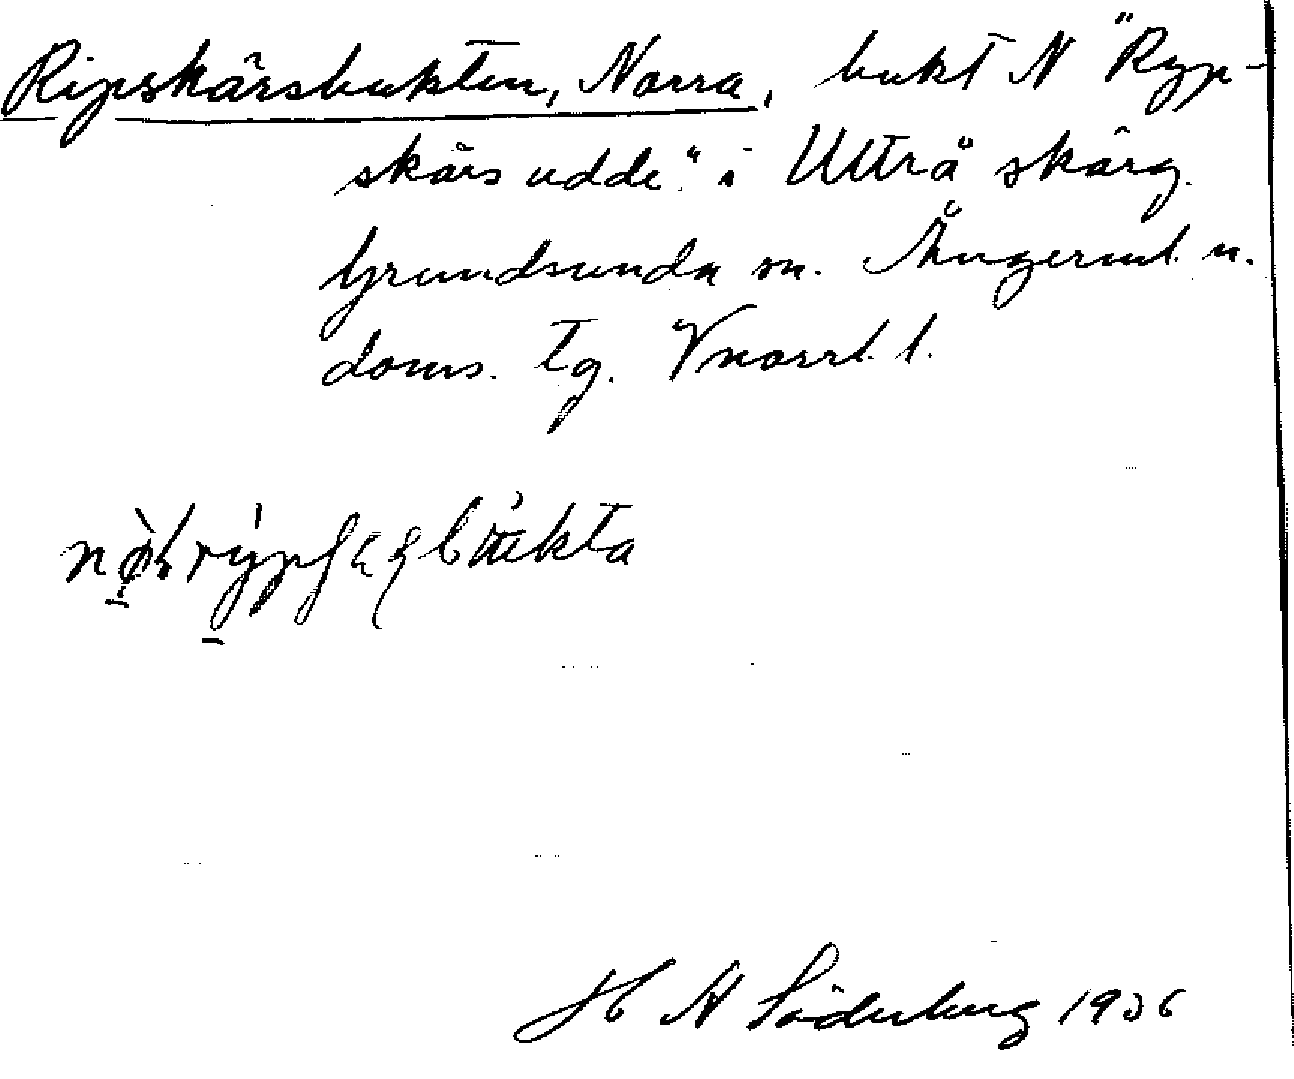 Ripskärsbukten, Norra, bukt N "Ryp-
skärsudde" i Utträ skärg.
Grundsunda sn. Ångerml. n.
doms. tg. Vnorrl. l.
H A Söderberg 1936